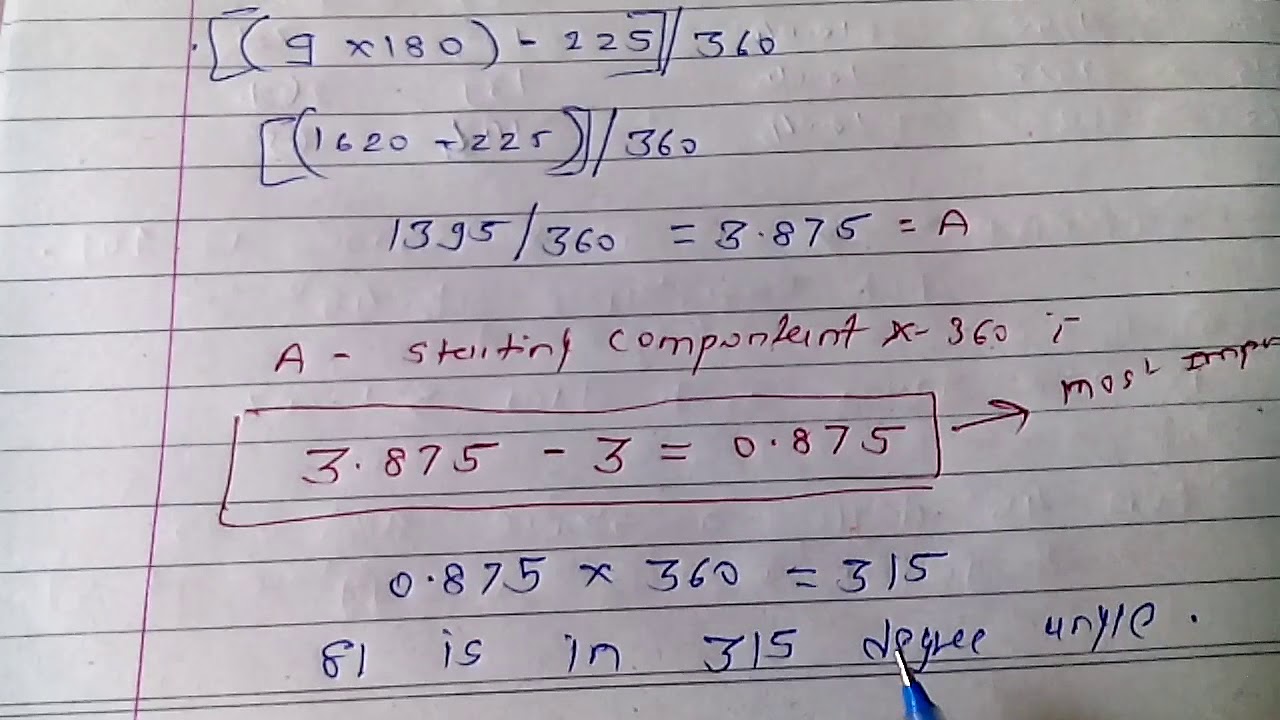 [(9 x 180) - 225]/360
[(1620 - 225)]/360
1395/360 = 3.875 = A
A - x - 360
most
3.875 - 3 = 0.875
0.875 x 360 = 315
81 is in 315 degree angle.